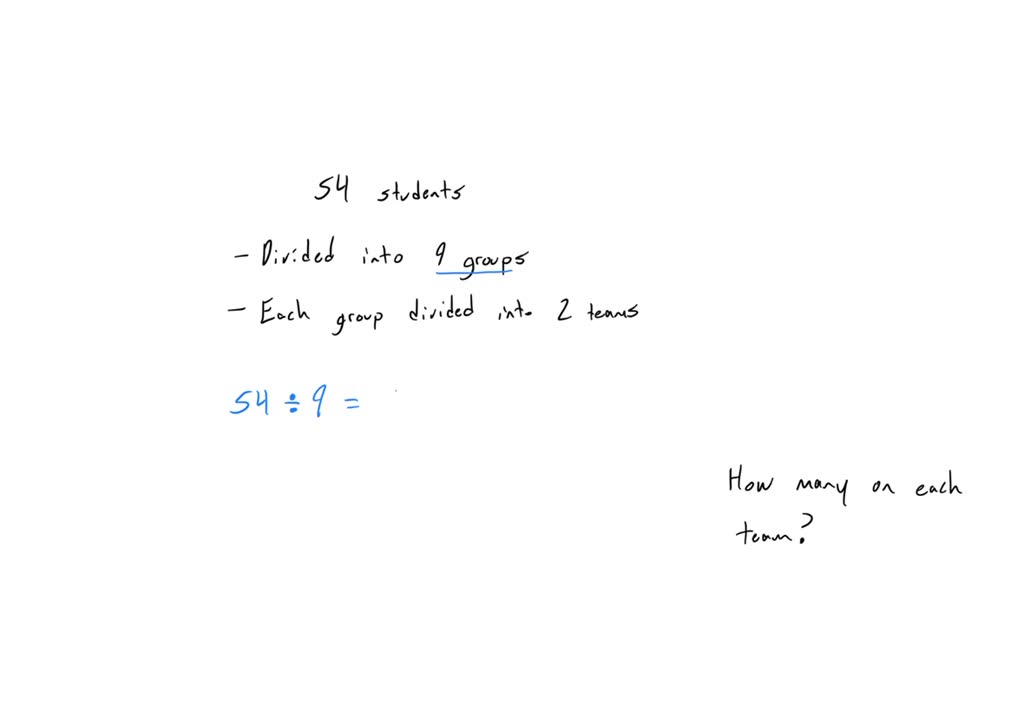 54 students
- Divided into 9 groups
- Each group divided into 2 teams
54 ÷ 9 =
How many on each
team?